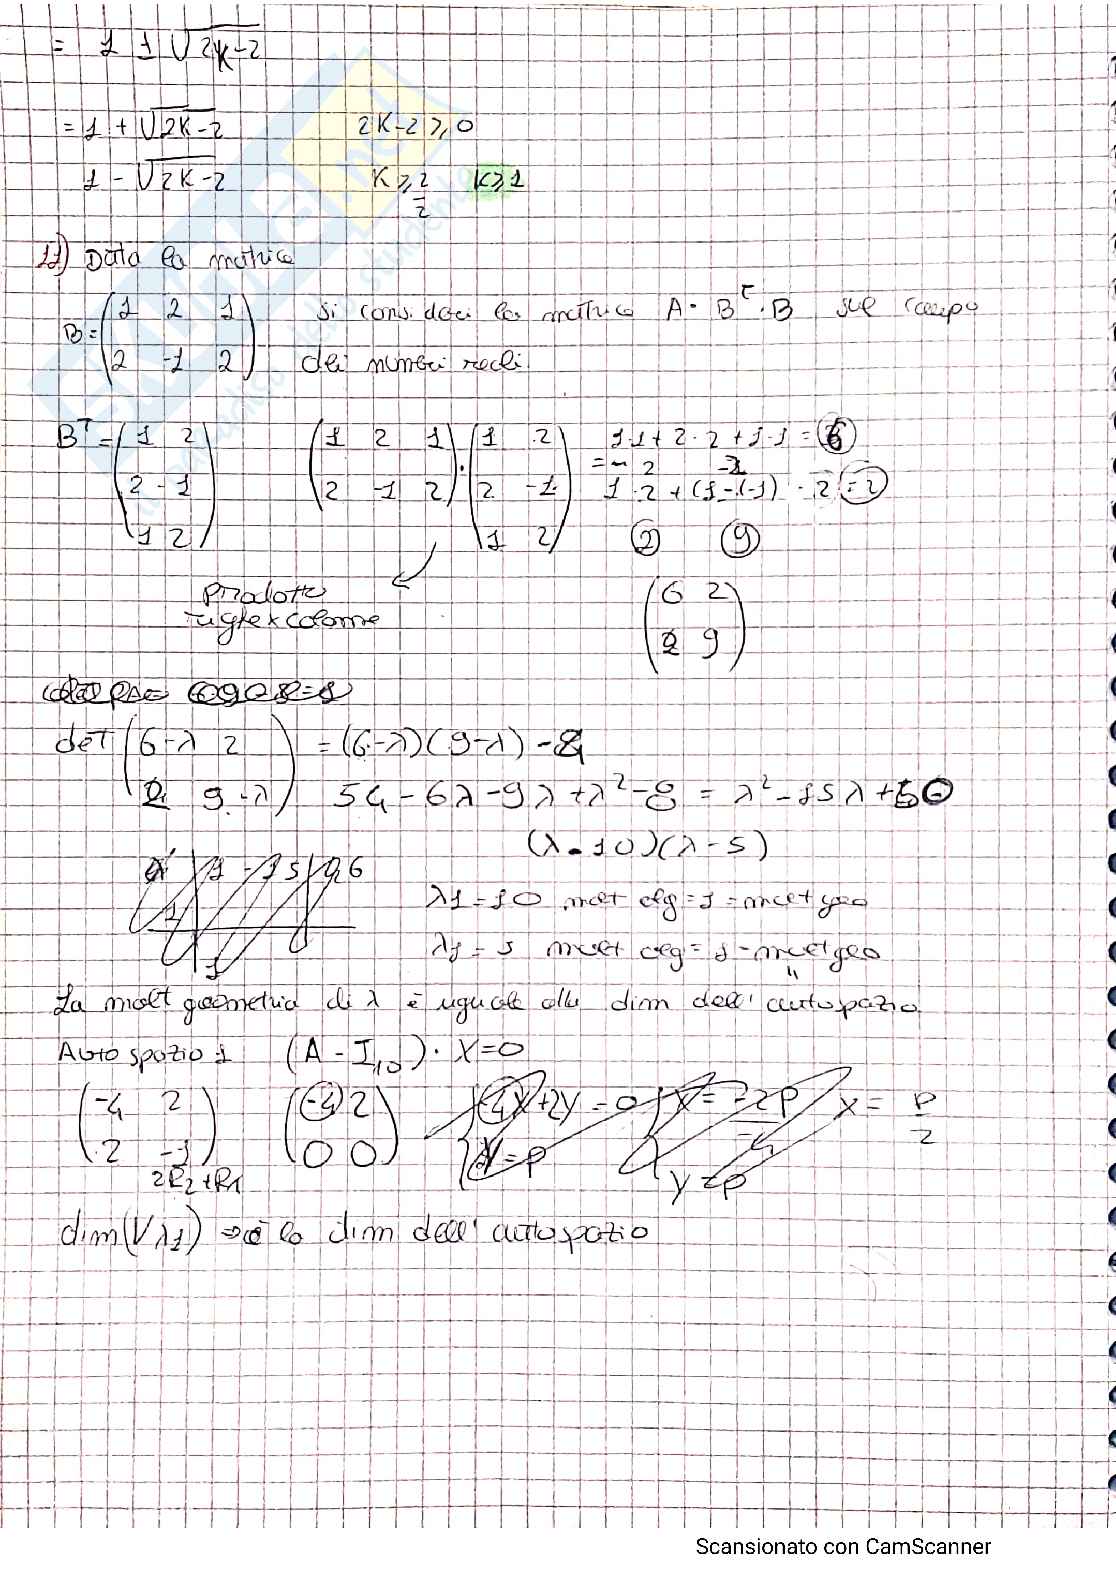 = 1 ± √2K-2
= 1 + √2K-2 2K-2 ⩾ 0
1 - √2K-2 K ⩾ 2/2 K⩾1
11) Data la matrice
B = (1 2 1 si consideri la matrice A = Bᵗ · B sul campo
2 -1 2) dei numeri reali
Bᵀ = (1 2 (1 2 1) · (1 2) 1·1 + 2·2 + 1·1 = 6
= 2 -1
2 -1 2 -1 2 2 -1 1·2 + (1-(-1) · 2 = 2
1 2) 1 2) 2 9
Prodotto (6 2
righe x colonne
2 9)
det (6-λ 2) = (6-λ)(9-λ) - 4
2 9-λ) 54 - 6λ - 9λ + λ² - 8 = λ² - 15λ + 50
(λ - 10)(λ - 5)
1 -15
λ1 = 10 molt alg = 1 = molt geo
λ1 = 5 molt alg = 1 = molt geo
"
La molt geometria di λ è uguale alla dim dell' autospazio.
Autospazio 1 (A - I10) · X = 0
(-4 2) (-4 2) -4X + 2Y = 0 X = -2P/-4 X = P/2
(2 -1) (0 0) Y = P Y = P
2R2 + R1
dim(Vλ1) => è la dim dell' autospazio
Scansionato con CamScanner